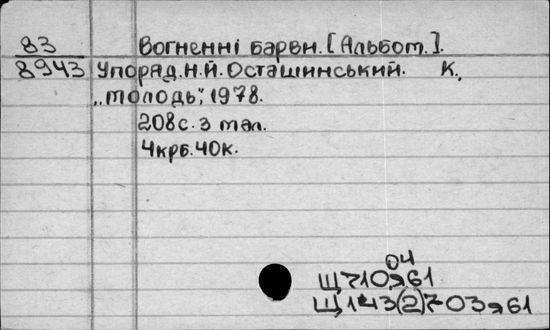 83 Вогненні барви. [Альбом.].
8943 Упоряд. Н.Й. Осташинський. К.,
„Молодь", 1978.
208с. з мал.
4крб. 40к.
04
Щ710я61
Щ143(2)703я61